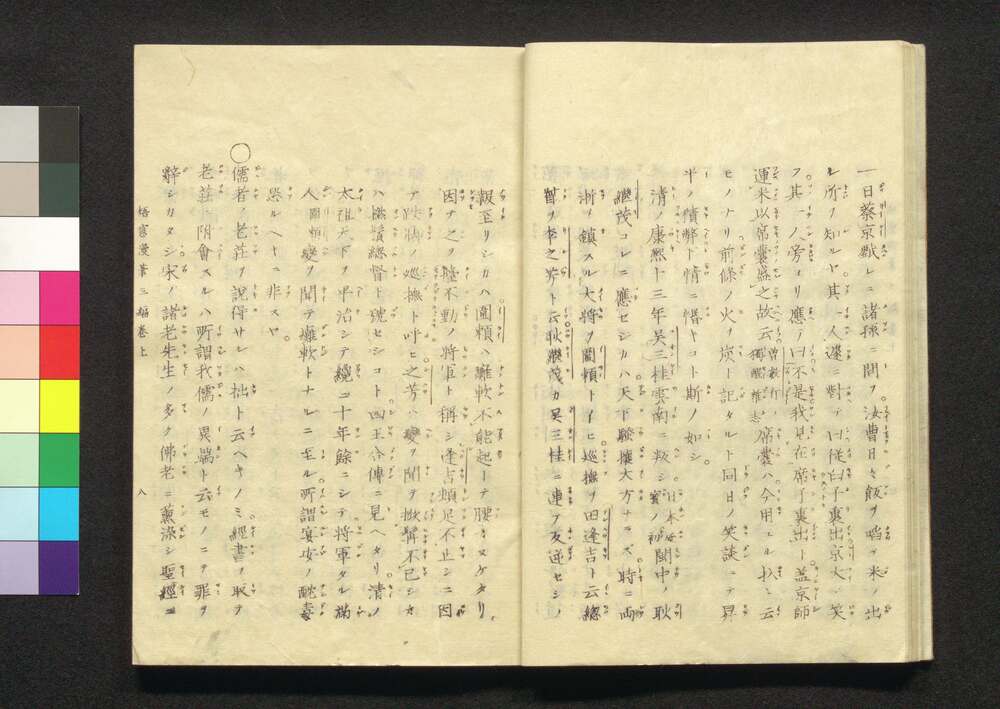 一日蔡京戯レニ諸孫ニ問フ汝曹日々飯ヲ啗フ米ノ出
ル所ヲ知ルヤ其一人遽ニ對テ曰從臼子裏出京大ニ笑
フ其一人旁ヨリ應テ曰不是我見在席子裏出ト盖京師
運米以席嚢盛之故云 席嚢ハ今用エル扒ニ云
モノナリ前條ノ火ヲ炭ト記タルト同日ノ笑談ニテ昇
平ノ積弊下情ニ慣キコト斯ノ如シ
清ノ康熙十三年呉三桂雲南ニ叛シ 日本 閩中ノ耿
繼茂コレニ應セシカハ天下騒擾大方ナラズ時ニ両
浙ヲ鎮スル大將ヲ圖頼トイヒ巡撫ヲ田逢吉ト云總
督ヲ李之芳ト云耿繼茂カ呉三桂ニ連テ友逆セシノ
報至リシカハ圖頼ハ癱軟不能起トテ腰ヲヌケタリ
因テ之ヲ陸不動ノ將軍ト稱シ逢吉頓足不止シニ因
テ跌脚ノ巡撫ト呼ヒ之芳ハ變ヲ聞ヲ掀髯不已シカ
ハ總督ト號セシコト四王合傳ニ見ヘタリ清ノ
太祖天下ヲ平治シテ纔ニ十年餘ニシテ將軍タル滿
人圖頼變ヲ聞テ癱軟トナルニ至ル所謂宴安ノ酖毒
恐ルヘキニ非スヤ
○儒者ノ老荘ヲ説得サルハ拙ト云ヘキノミ經書ヲ取テ
老荘ニ附會スルハ所謂我儒ノ異端ト云モノニテ罪ヲ
辭シカタシ宋ノ諸老先生ノ多ク佛老ニ薫染シ聖經ニ
梧窓漫筆三編巻上 八